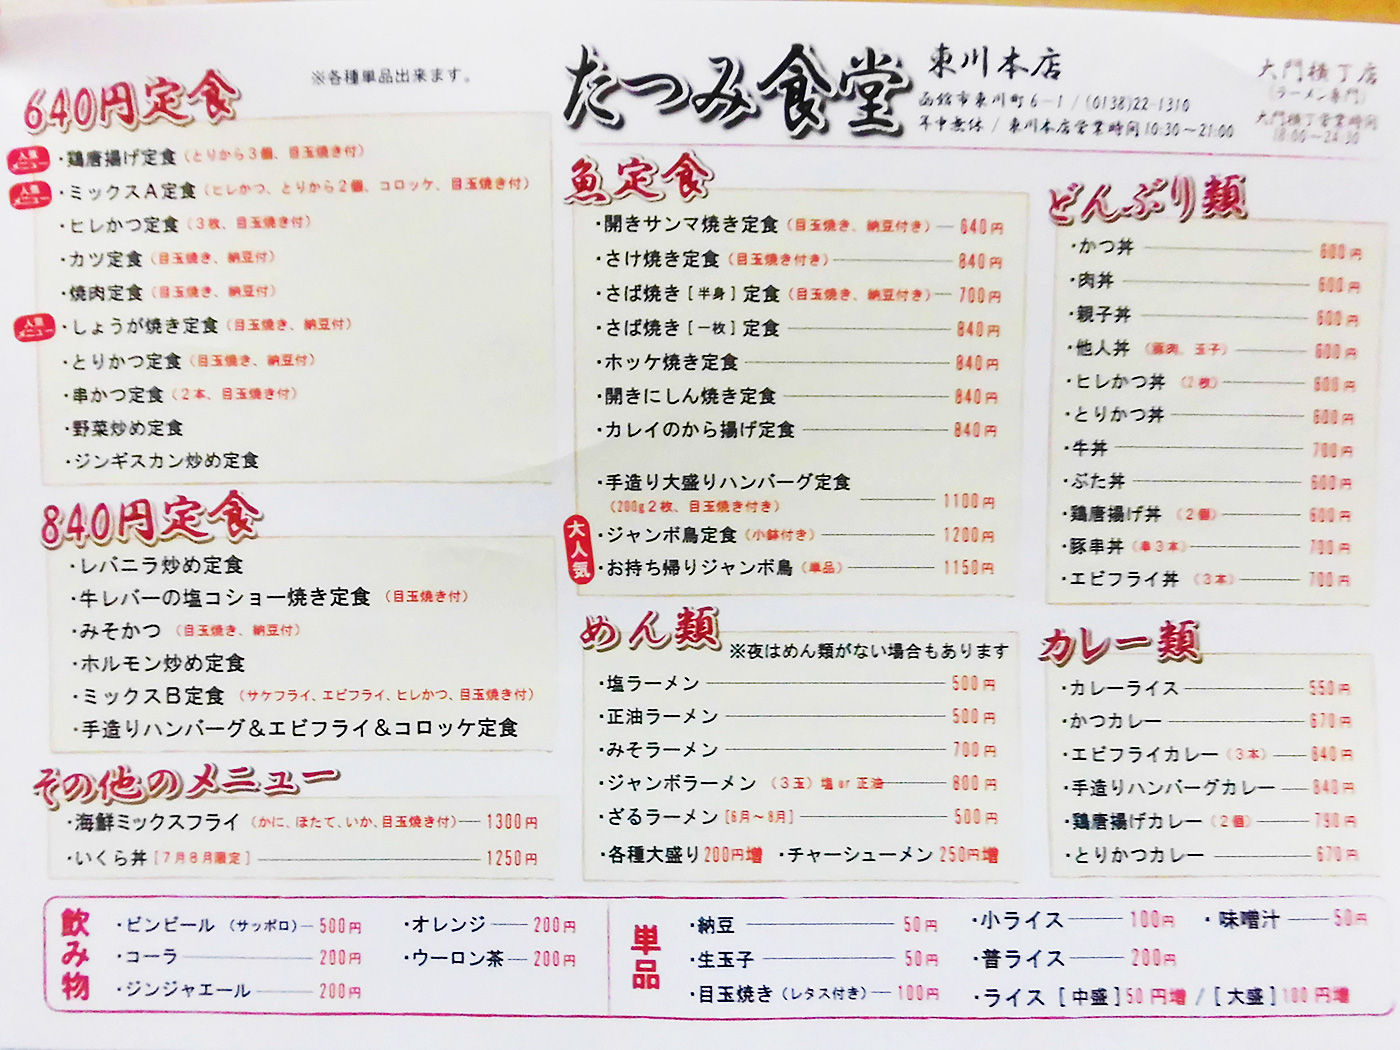 640円定食
※各種単品出来ます。
人気メニュー
・鶏唐揚げ定食（とりから3個、目玉焼き付）
人気メニュー
・ミックスA定食（ヒレかつ、とりから2個、コロッケ、目玉焼き付）
・ヒレかつ定食（3枚、目玉焼き付）
・カツ定食（目玉焼き、納豆付）
・焼肉定食（目玉焼き、納豆付）
人気メニュー
・しょうが焼き定食（目玉焼き、納豆付）
・とりかつ定食（目玉焼き、納豆付）
・串かつ定食（2本、目玉焼き付）
・野菜炒め定食
・ジンギスカン炒め定食
840円定食
・レバニラ炒め定食
・牛レバーの塩コショー焼き定食（目玉焼き付）
・みそかつ（目玉焼き、納豆付）
・ホルモン炒め定食
・ミックスB定食（サケフライ、エビフライ、ヒレかつ、目玉焼き付）
・手造りハンバーグ＆エビフライ＆コロッケ定食
その他のメニュー
・海鮮ミックスフライ（かに、ほたて、いか、目玉焼き付）1300円
・いくら丼［7月8月限定］1250円
たつみ食堂 東川本店
函館市東川町6－1 / (0138)22-1310
年中無休 / 東川本店営業時間10:30～21:00
大門横丁店
（ラーメン専門）
大門横丁営業時間
18:00～24:30
魚定食
・開きサンマ焼き定食（目玉焼き、納豆付き）840円
・さけ焼き定食（目玉焼き付き）840円
・さば焼き［半身］定食（目玉焼き、納豆付き）700円
・さば焼き［一枚］定食 840円
・ホッケ焼き定食 840円
・開きにしん焼き定食 840円
・カレイのから揚げ定食 840円
・手造り大盛りハンバーグ定食
（200g2枚、目玉焼き付き）1100円
大人気
・ジャンボ鳥定食（小鉢付き）1200円
・お持ち帰りジャンボ鳥（単品）1150円
めん類
※夜はめん類がない場合もあります
・塩ラーメン 500円
・正油ラーメン 500円
・みそラーメン 700円
・ジャンボラーメン（3玉）塩 or 正油 800円
・ざるラーメン［6月～8月］500円
・各種大盛り200円増 ・チャーシューメン250円増
どんぶり類
・かつ丼 600円
・肉丼 600円
・親子丼 600円
・他人丼（豚肉、玉子）600円
・ヒレかつ丼（2枚）600円
・とりかつ丼 600円
・牛丼 700円
・ぶた丼 600円
・鶏唐揚げ丼（2個）600円
・豚串丼（串3本）700円
・エビフライ丼（3本）700円
カレー類
・カレーライス 550円
・かつカレー 670円
・エビフライカレー（3本）840円
・手造りハンバーグカレー 840円
・鶏唐揚げカレー（2個）790円
・とりかつカレー 670円
飲み物
・ビンビール（サッポロ）500円
・コーラ 200円
・ジンジャエール 200円
・オレンジ 200円
・ウーロン茶 200円
単品
・納豆 50円
・生玉子 50円
・目玉焼き（レタス付き）100円
・小ライス 100円
・味噌汁 50円
・普ライス 200円
・ライス［中盛］50円増 /［大盛］100円増